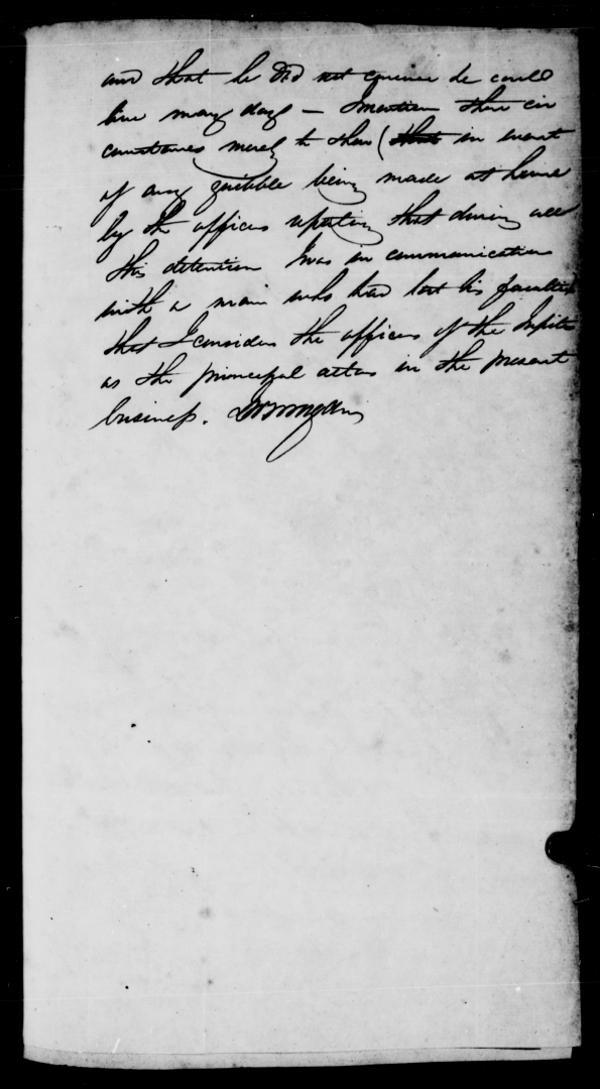 and that he did not conceive he could
live many days – I mention these cir
cumstances merely to shew (that in event
of any quibble being made at home
by the officers reporting that during all
this detention I was in communication
with a man who had lost his faculties
that I consider the officers of the
as the principal actors in the present
business.